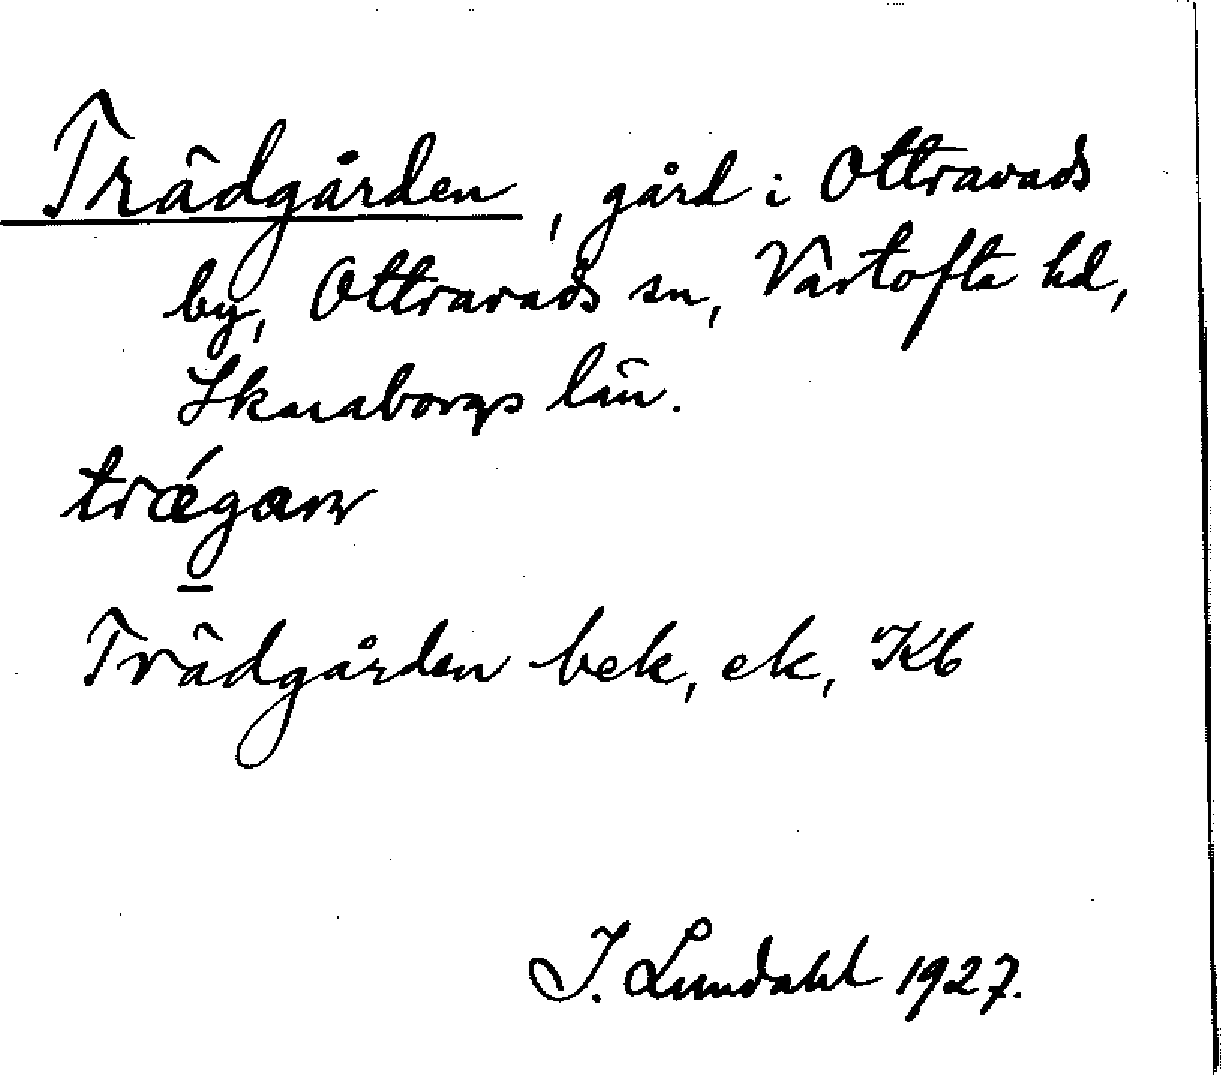 Trädgården, gård i Ottravads
by, Ottravads sn, Vartofta hd,
Skaraborgs län.
trǽgaɳ
Trädgården bek, ek, Kb
I. Lundahl 1927.